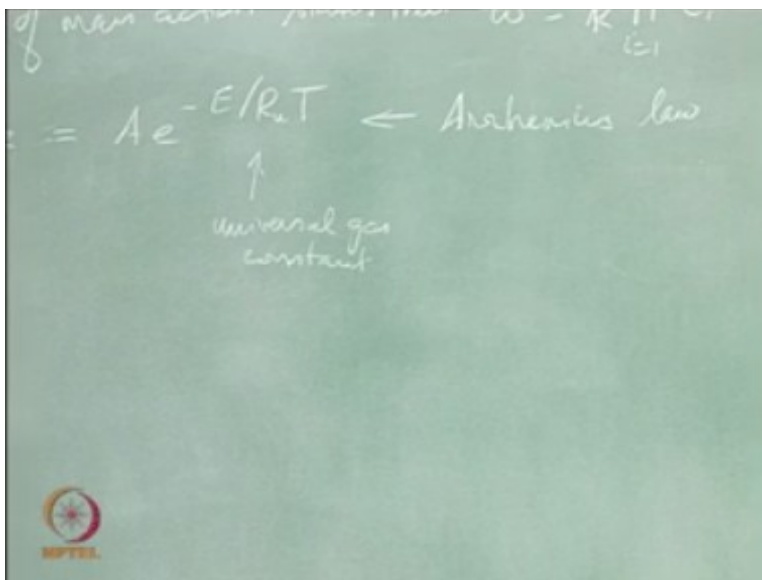 of mass action
i=1
= A e^{-E/R_u T} ← Arrhenius law
↑
universal gas
constant
NPTEL